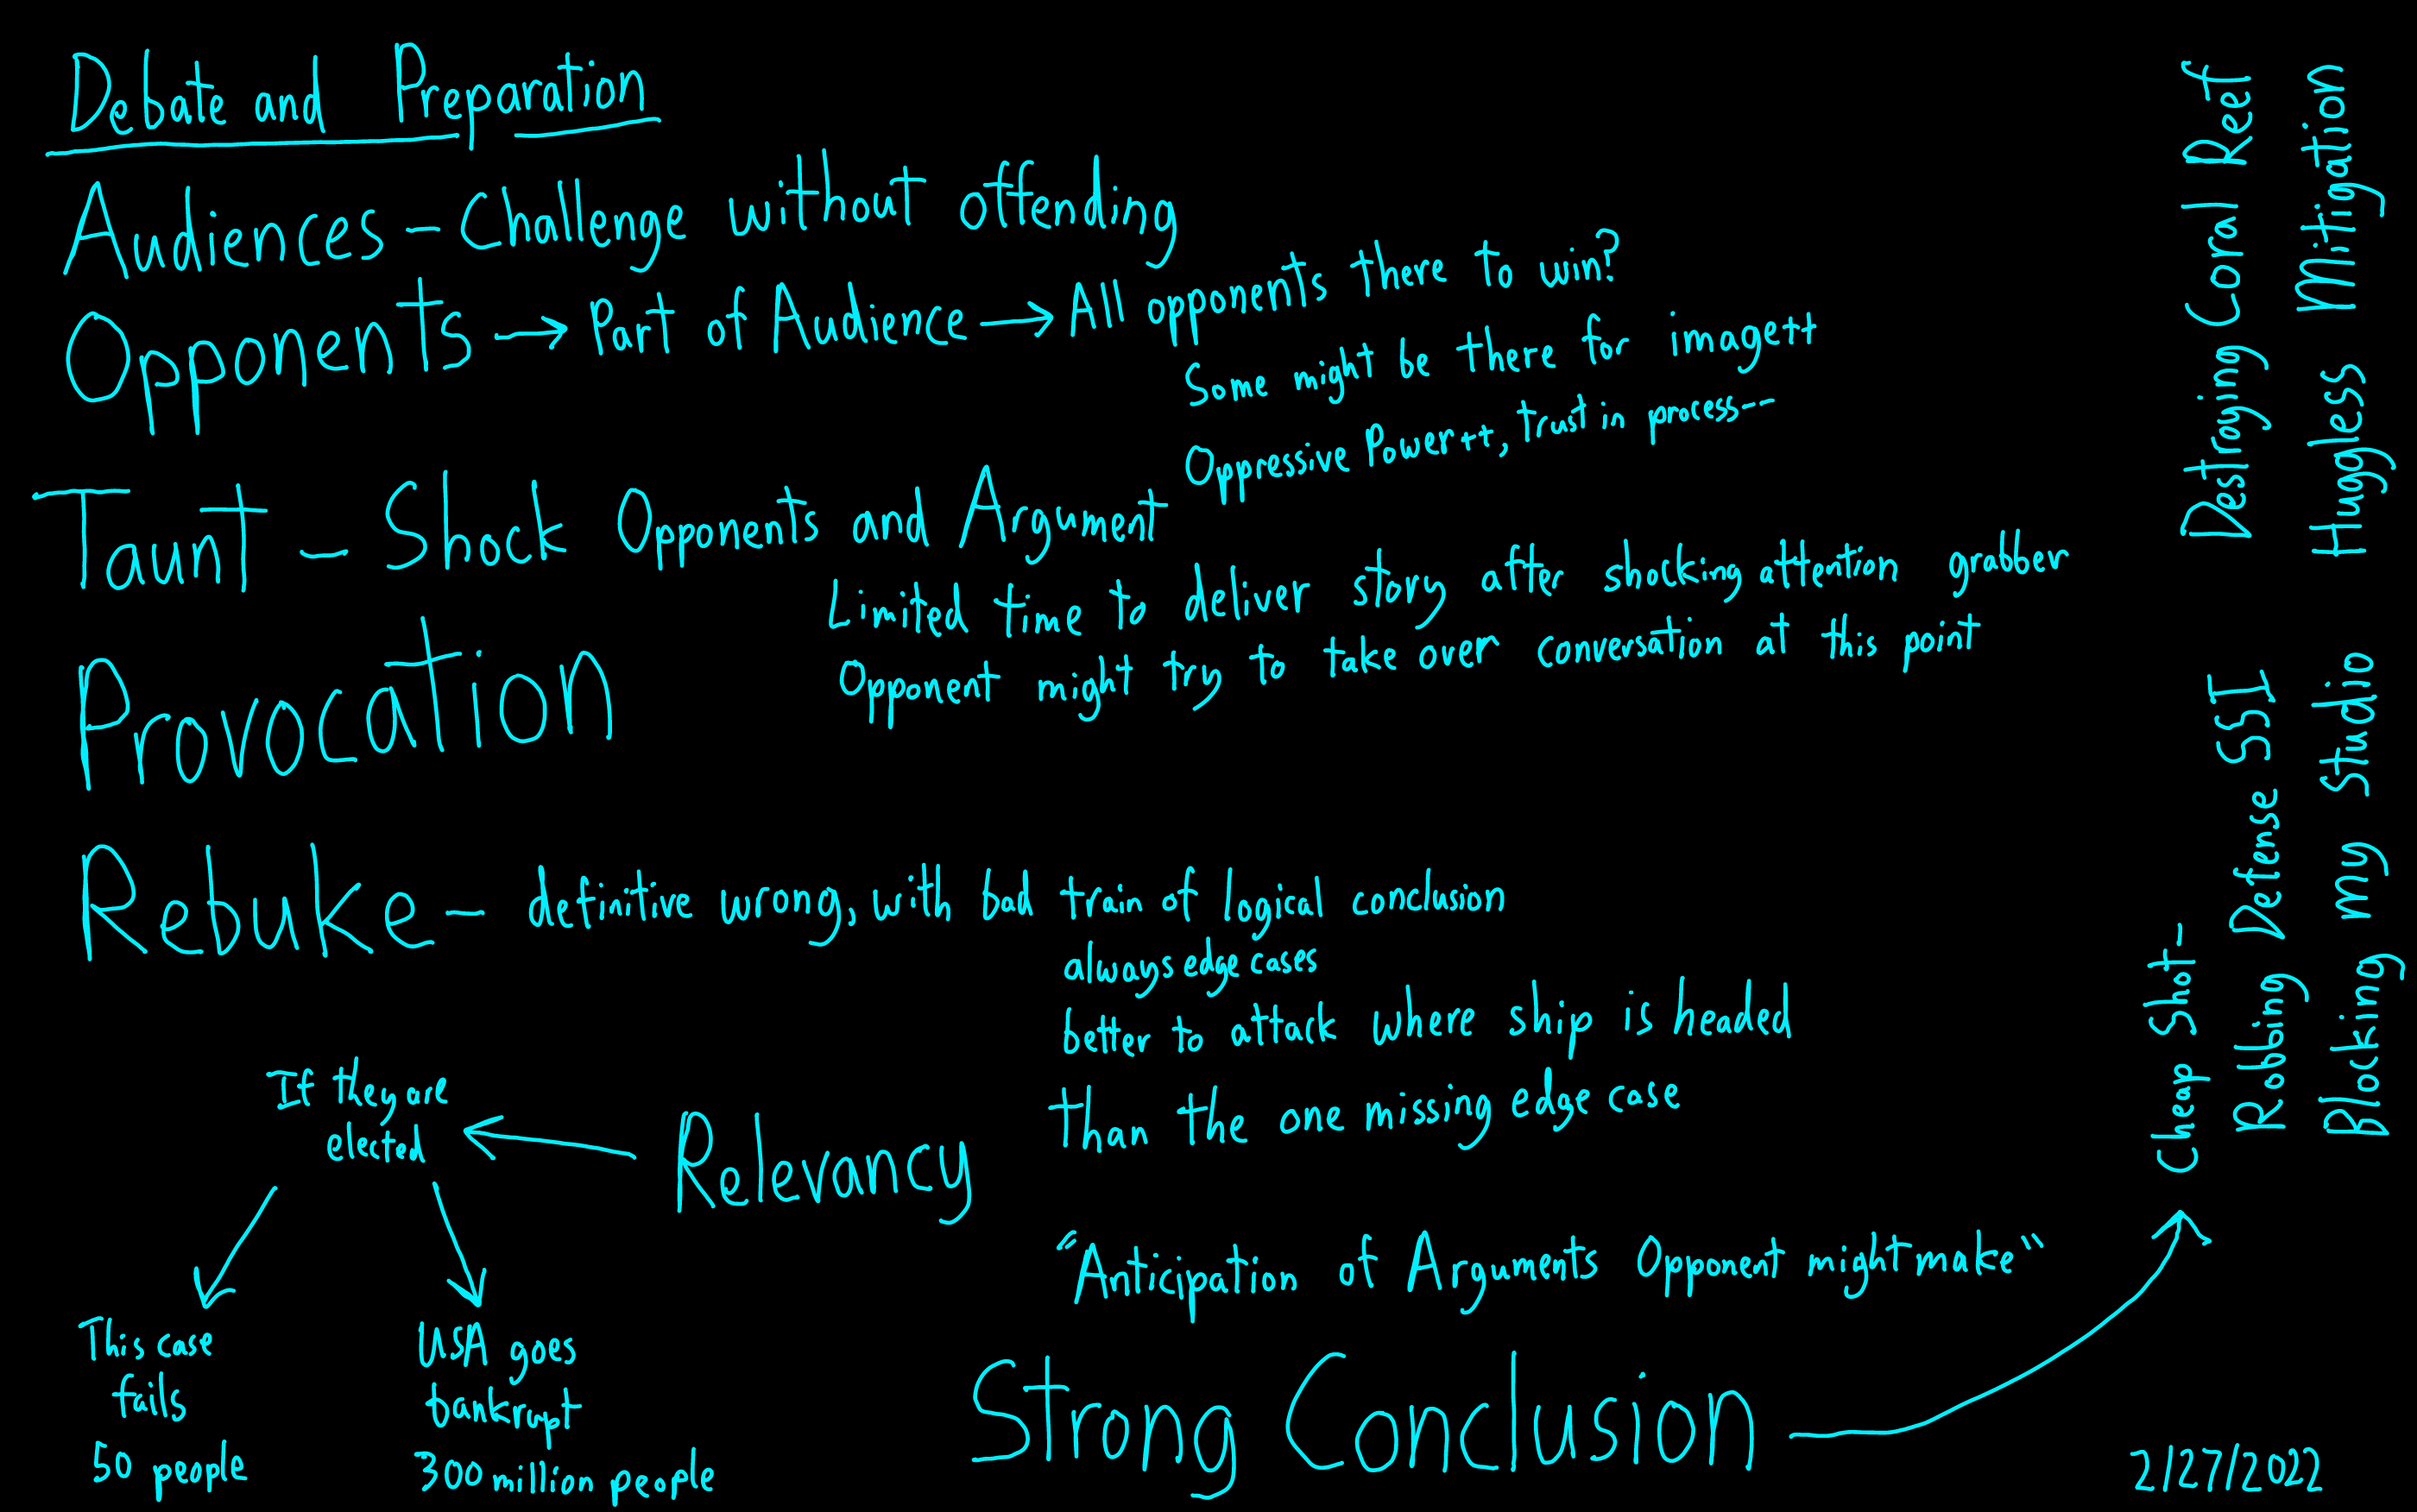 Debate and Preparation
Audiences - Challenge without offending
Opponents → Part of Audience → All opponents there to win?
Some might be there for image++
Oppressive Power++, trust in process--
Taunt - Shock Opponents and Argument
Limited time to deliver story after shocking attention grabber
Opponent might try to take over conversation at this point
Provocation
Rebuke - definitive wrong, with bad train of logical conclusion
always edge cases
better to attack where ship is headed
than the one missing edge case
Relevancy
If they are
elected
This case
fails
50 people
USA goes
bankrupt
300 million people
"Anticipation of Arguments Opponent might make"
Strong Conclusion
Cheap Shot-
Robbing Defense SSI
Blocking my studio
Destroying Coral Reef
Hugless Mitigation
2/27/2022